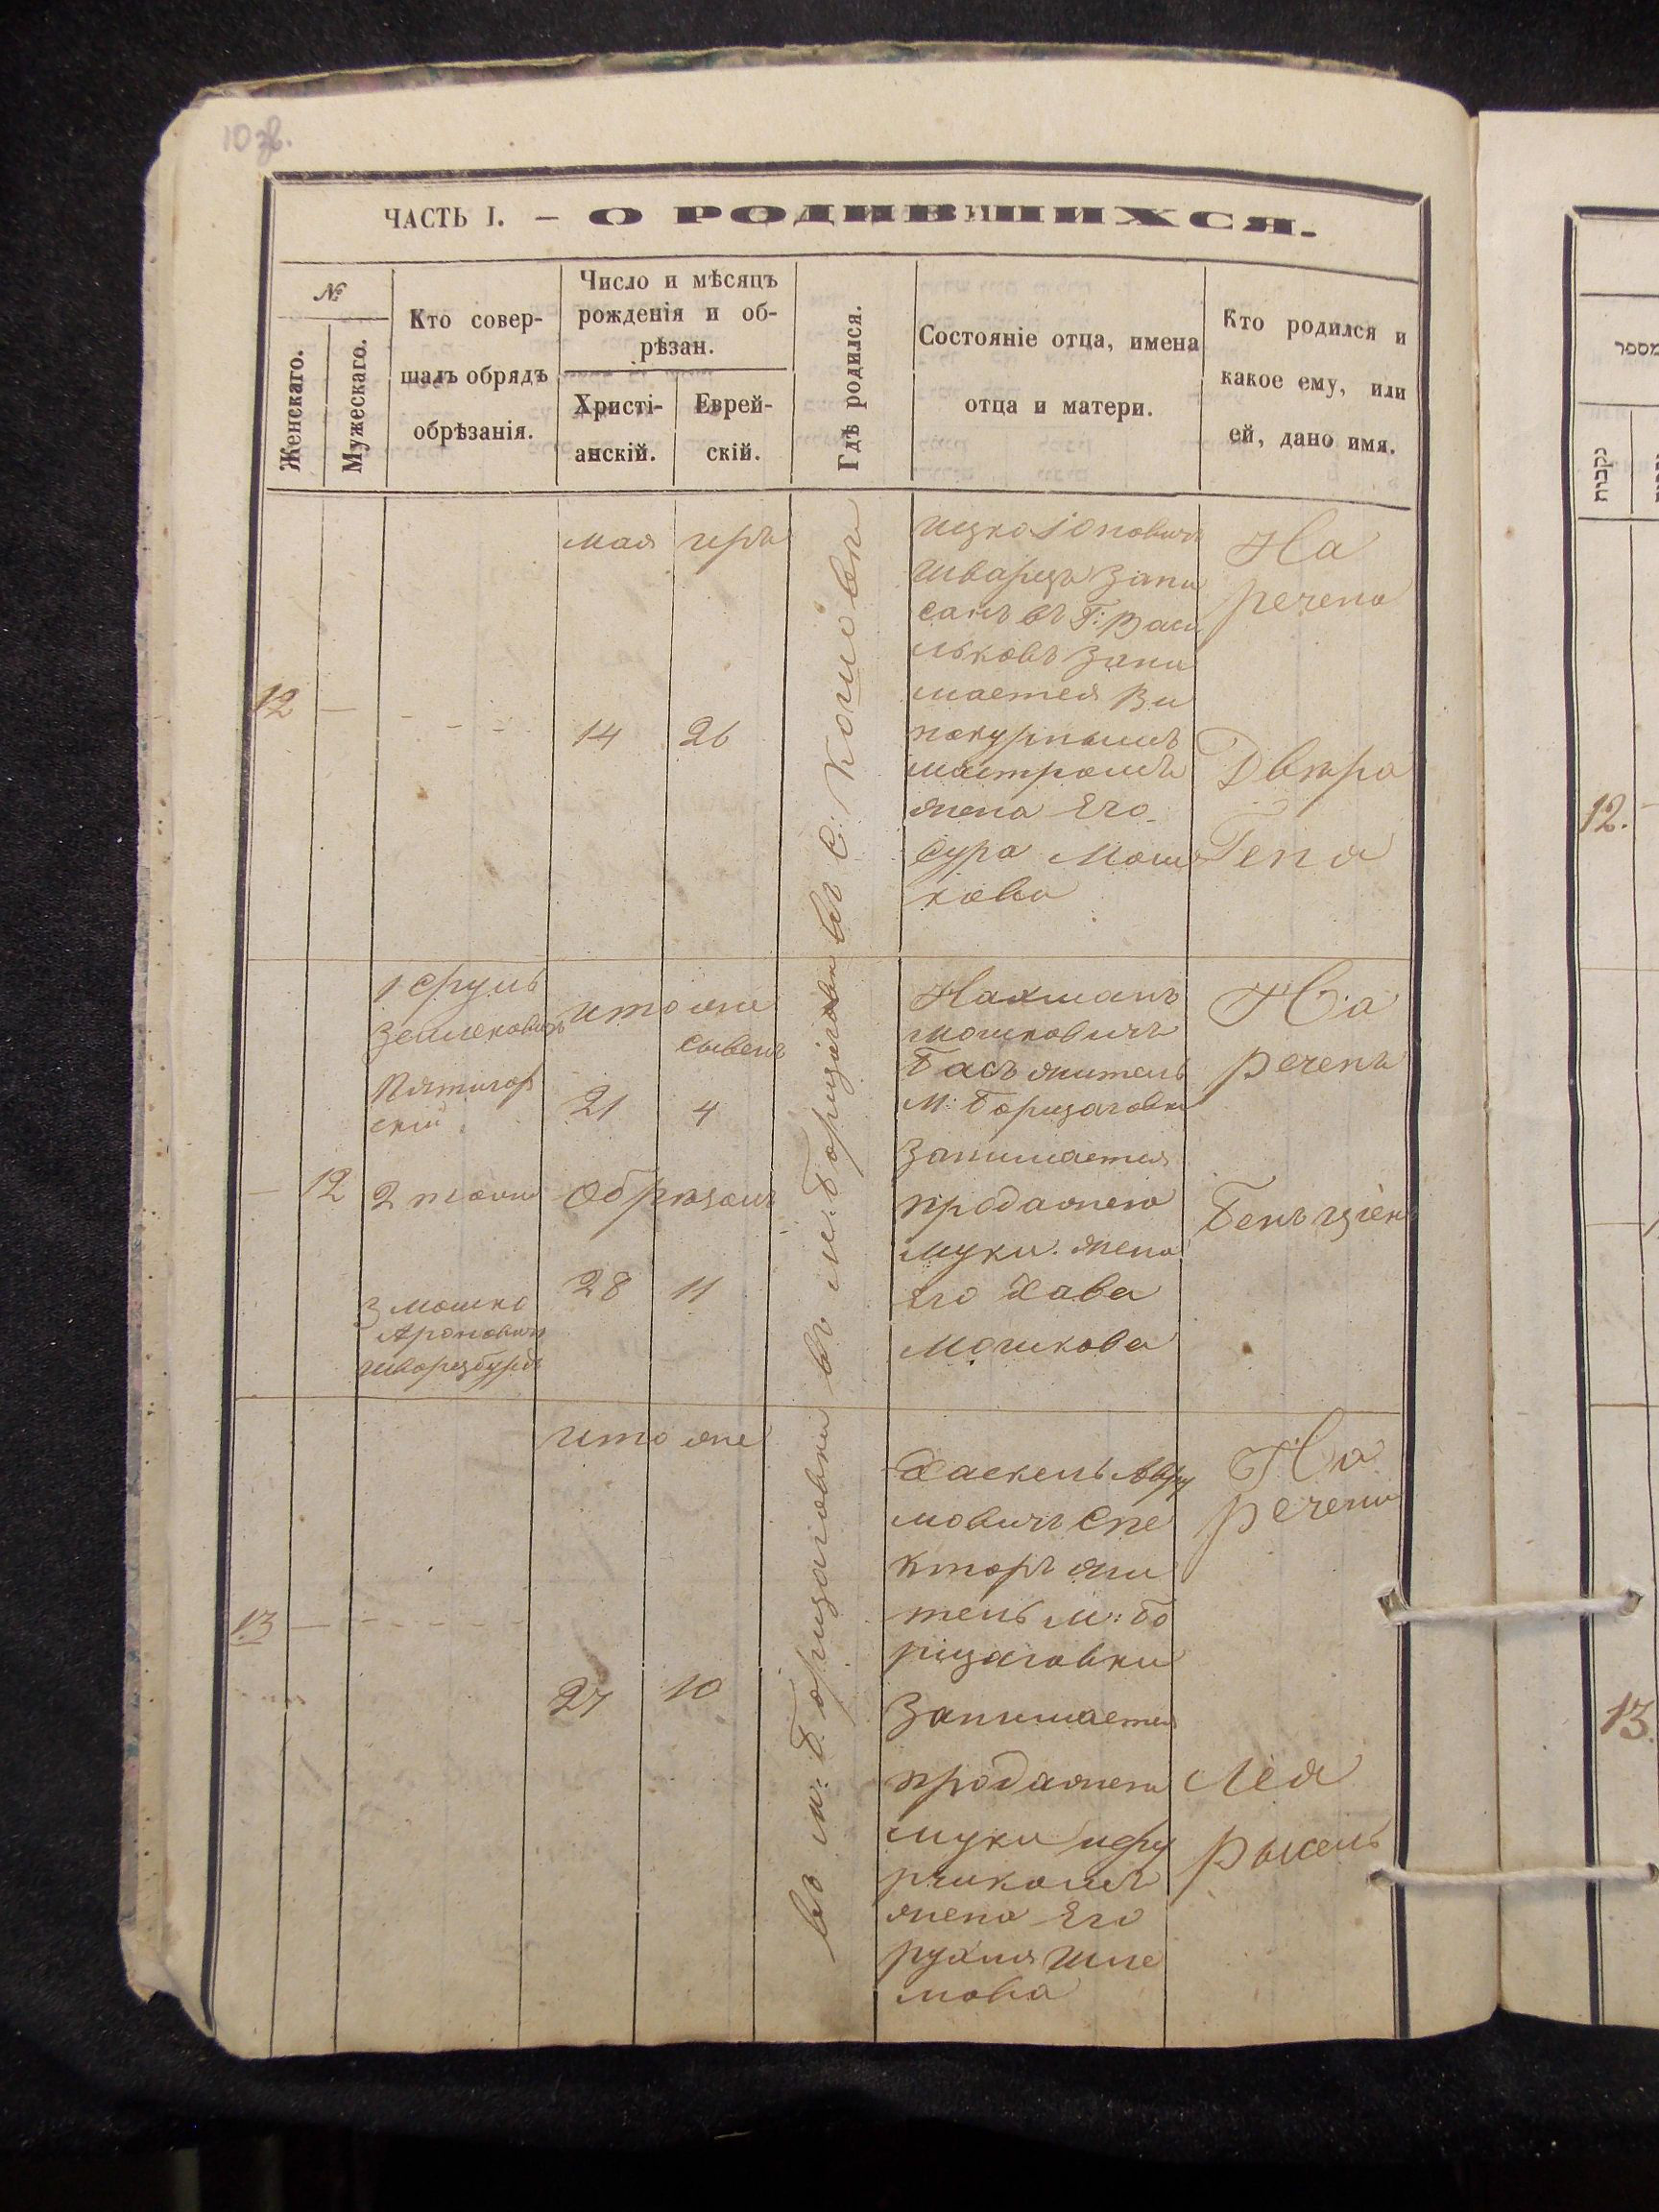 10 зв.
ЧАСТЬ I. — О РОДИВШИХСЯ.
№
Женскаго.
Мужескаго.
Кто совер-
шалъ обрядъ
обрѣзанія.
Число и мѣсяцъ
рожденія и об-
рѣзан.
Христі-
анскій.
Еврей-
скій.
Гдѣ родился.
Состояніе отца, имена
отца и матери.
Кто родился и
какое ему, или
ей, дано имя.
12
—
мая
иръ
14
26
въ с:
Ицко Іоповичъ
Шварцъ Запи
санъ въ Г: Васи
льковъ Зани
мается Ви
нокурнымъ
мастромъ
жена Его
Сура Мош
кова
На
речена
Двойра
Гена
—
12
1 Сруль
Зейликовичъ
Пятигор
скій
2 тоже
3 Мошко
Ароновичъ
Шварцбурдъ
итоже
сывенъ
21
4
Обрѣзанъ
28
11
въ м: Борщаговки
Нахманъ
Мошковичъ
Басъ житель
М: Борщаговки
Занимается
продажею
муки. жена
Его Хава
Мошкова
На
реченъ
Бенъ ціенъ
13
—
итоже
27
10
въ м: Борщаговки
Хаскель Авру
мовичъ Спе
кторъ жи
тель м: Бо
рщаговки
Занимается
продажею
муки
жена Его
Рухля Шле
мова
На
речена
Лея
Рысель
מספר
נקבות
12.
13.